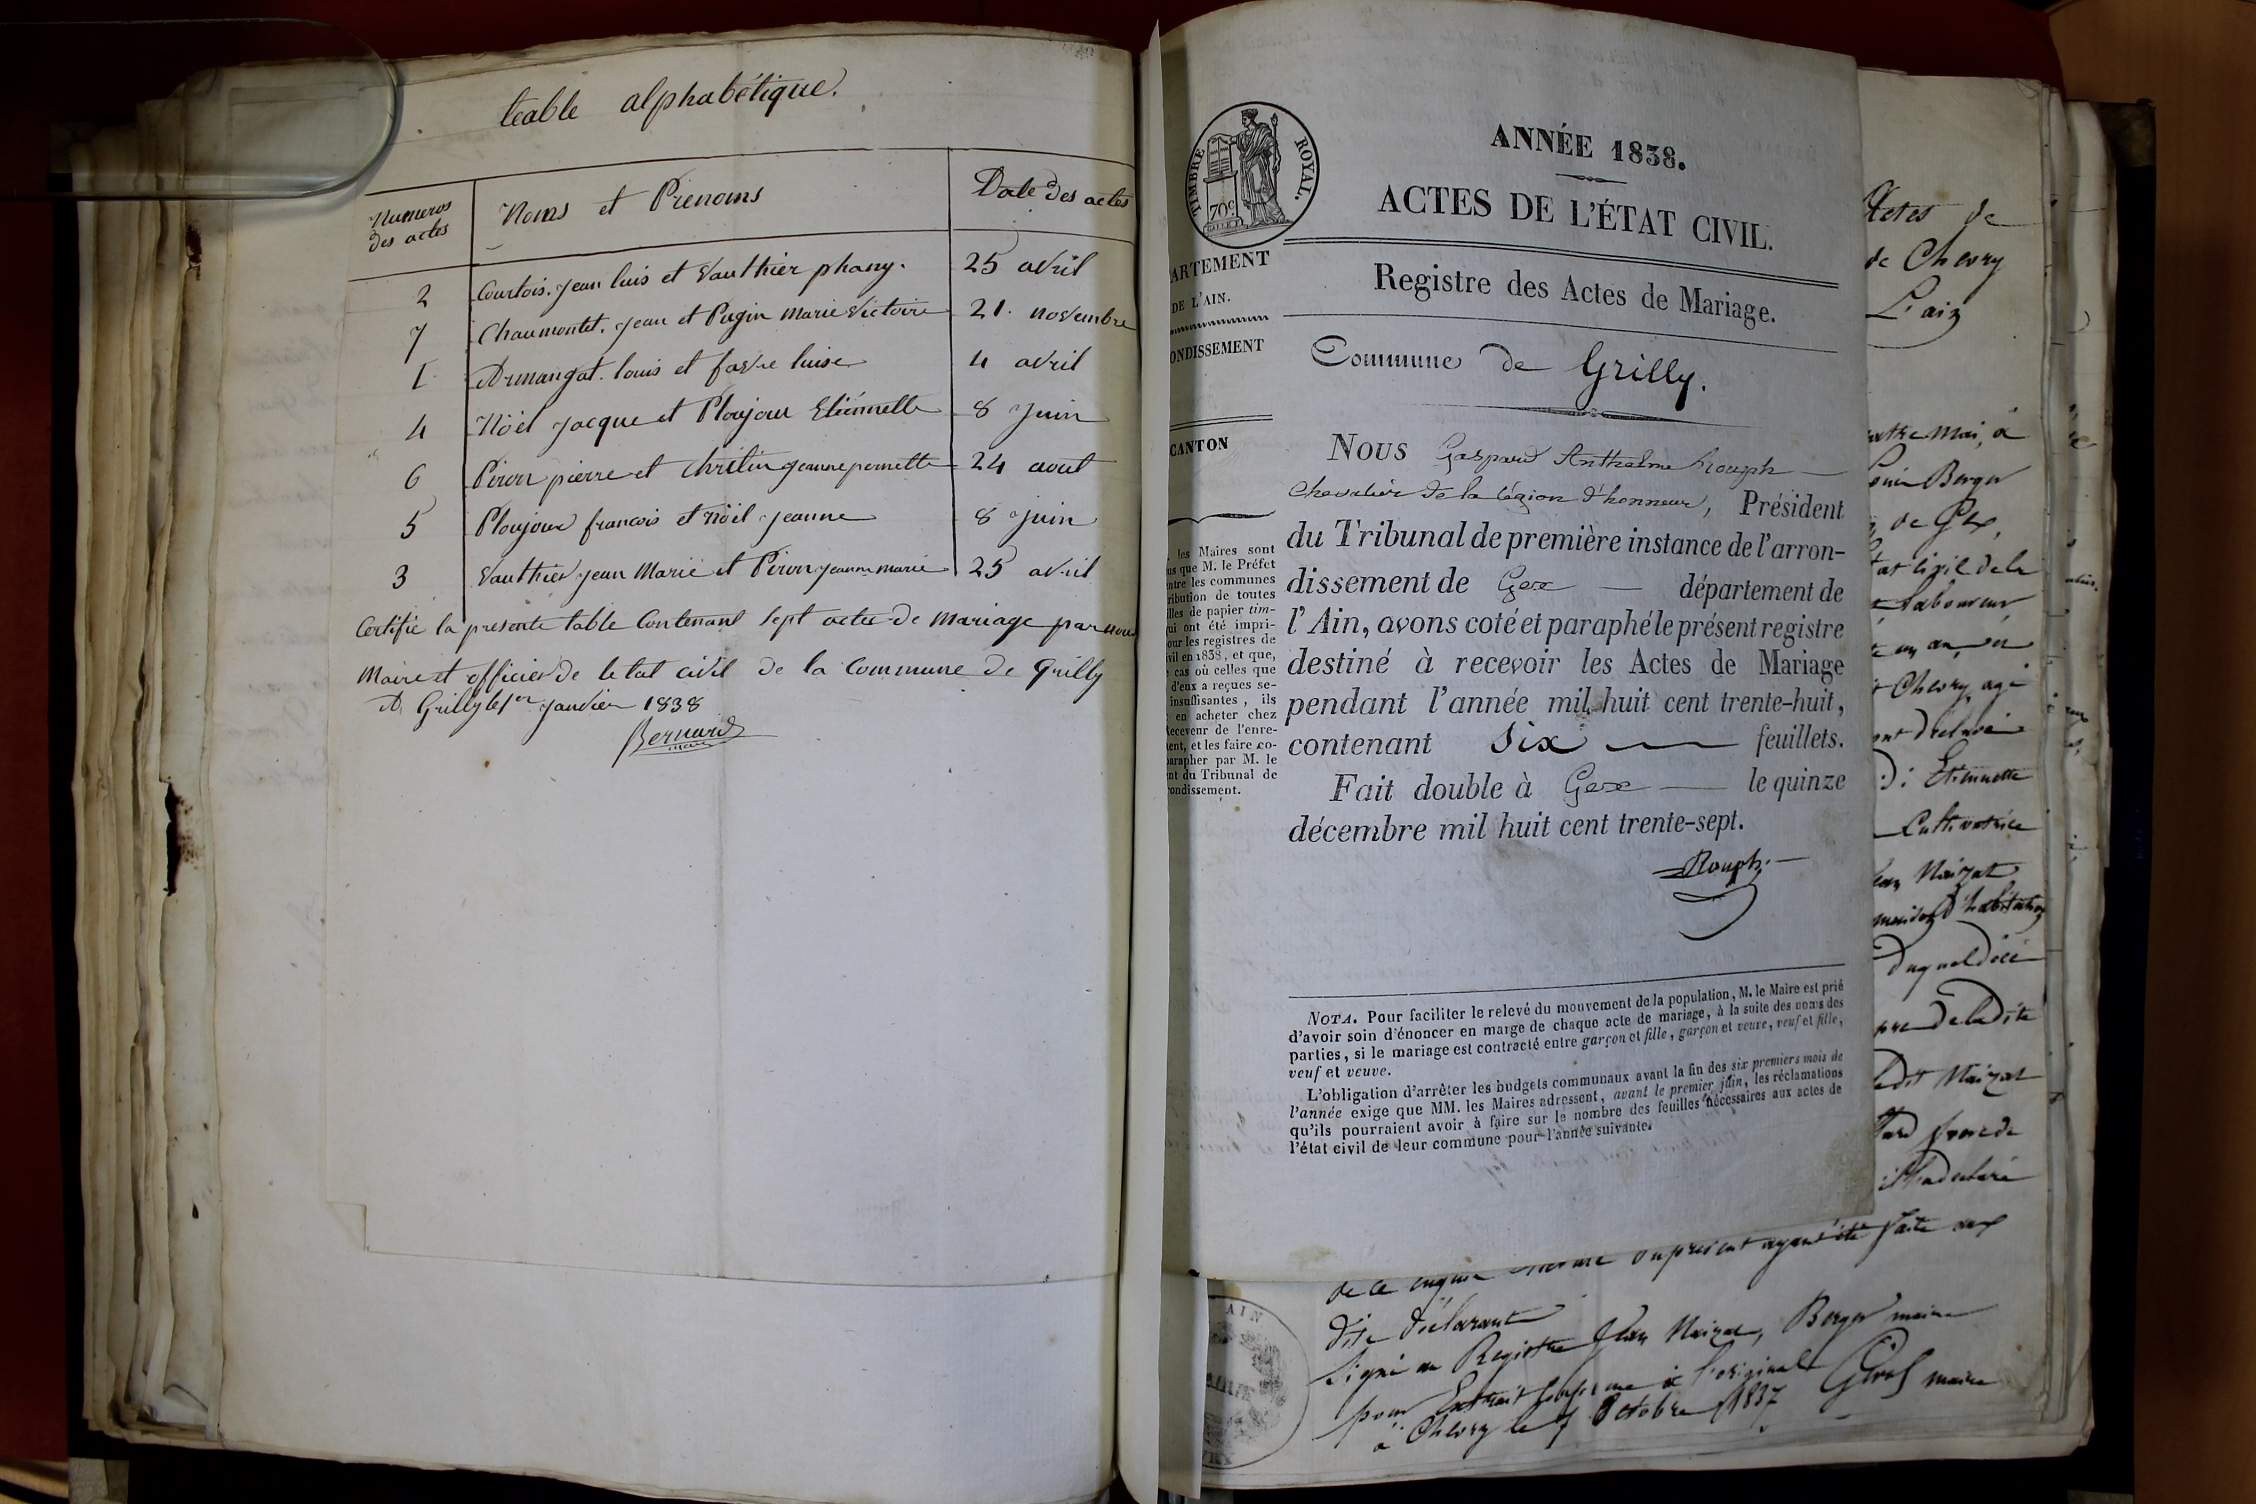 table alphabétique.
Numeros des actes Noms et Prenoms Date des actes
2 Courtois. Jean luis et Vauthier phany. 25 avril
7 Chaumontet. Jean et Pugin Marie Victoire 21. novembre
1 Armangat. louis et favre luise 4 avril
4 Nöel Jacque et Ploujour Etiénnette 8 Juin
6 Piron pierre et Christin jeanne pernette 24 aout
5 Ploujour francois et Nöel Jeanne 8 Juin
3 Vauthier Jean Marie et Piron jeanne marie 25 avril
Certifie la presente table Contenant Sept actes de Mariage par nous
Maire et officier de letat civil de la Commune de Grilly
A Grilly le 1er janvier 1838
Bernard
maire
TIMBRE ROYAL.
70c.
ANNÉE 1838.
ACTES DE L'ÉTAT CIVIL.
ARTEMENT
DE L'AIN.
ONDISSEMENT
CANTON
les Maires sont
us que M. le Préfet
entre les communes
ribution de toutes
illes de papier tim-
ui ont été impri-
our les registres de
vil en 1838, et que,
cas où celles que
d'eux a reçues se-
insuffisantes, ils
en acheter chez
Receveur de l'enre-
ent, et les faire co-
parapher par M. le
nt du Tribunal de
ondissement.
Registre des Actes de Mariage.
Commune de Grilly.
Nous Gaspard Anthelme Rouph
Chevalier de la légion d'honneur, Président
du Tribunal de première instance de l'arron-
dissement de Gex département de
l'Ain, avons coté et paraphé le présent registre
destiné à recevoir les Actes de Mariage
pendant l'année mil huit cent trente-huit,
contenant Six feuillets.
Fait double à Gex le quinze
décembre mil huit cent trente-sept.
Rouph.
NOTA. Pour faciliter le relevé du mouvement de la population, M. le Maire est prié
d'avoir soin d'énoncer en marge de chaque acte de mariage, à la suite des noms des
parties, si le mariage est contracté entre garçon et fille, garçon et veuve, veuf et fille,
veuf et veuve.
L'obligation d'arrêter les budgets communaux avant la fin des six premiers mois de
l'année exige que MM. les Maires adressent, avant le premier juin, les réclamations
qu'ils pourraient avoir à faire sur le nombre des feuilles nécessaires aux actes de
l'état civil de leur commune pour l'année suivante.
Actes de
de Chevry
L'ain
Mai, à
Berger
de Gex,
civil de la
laboureur
an,
Chevry, agé
Etiennette
Cultivatrice
Jean Maizat
maison d'habitation
duquel décé
de ladite
ledit Maizat
de ce du present ayant été faite aux
dits déclarants
Signé au Registre Jean Maizat, Berger maire
pour Extrait Conforme à l'original
à Chevry le 7 Octobre 1837 Girod maire
AIN